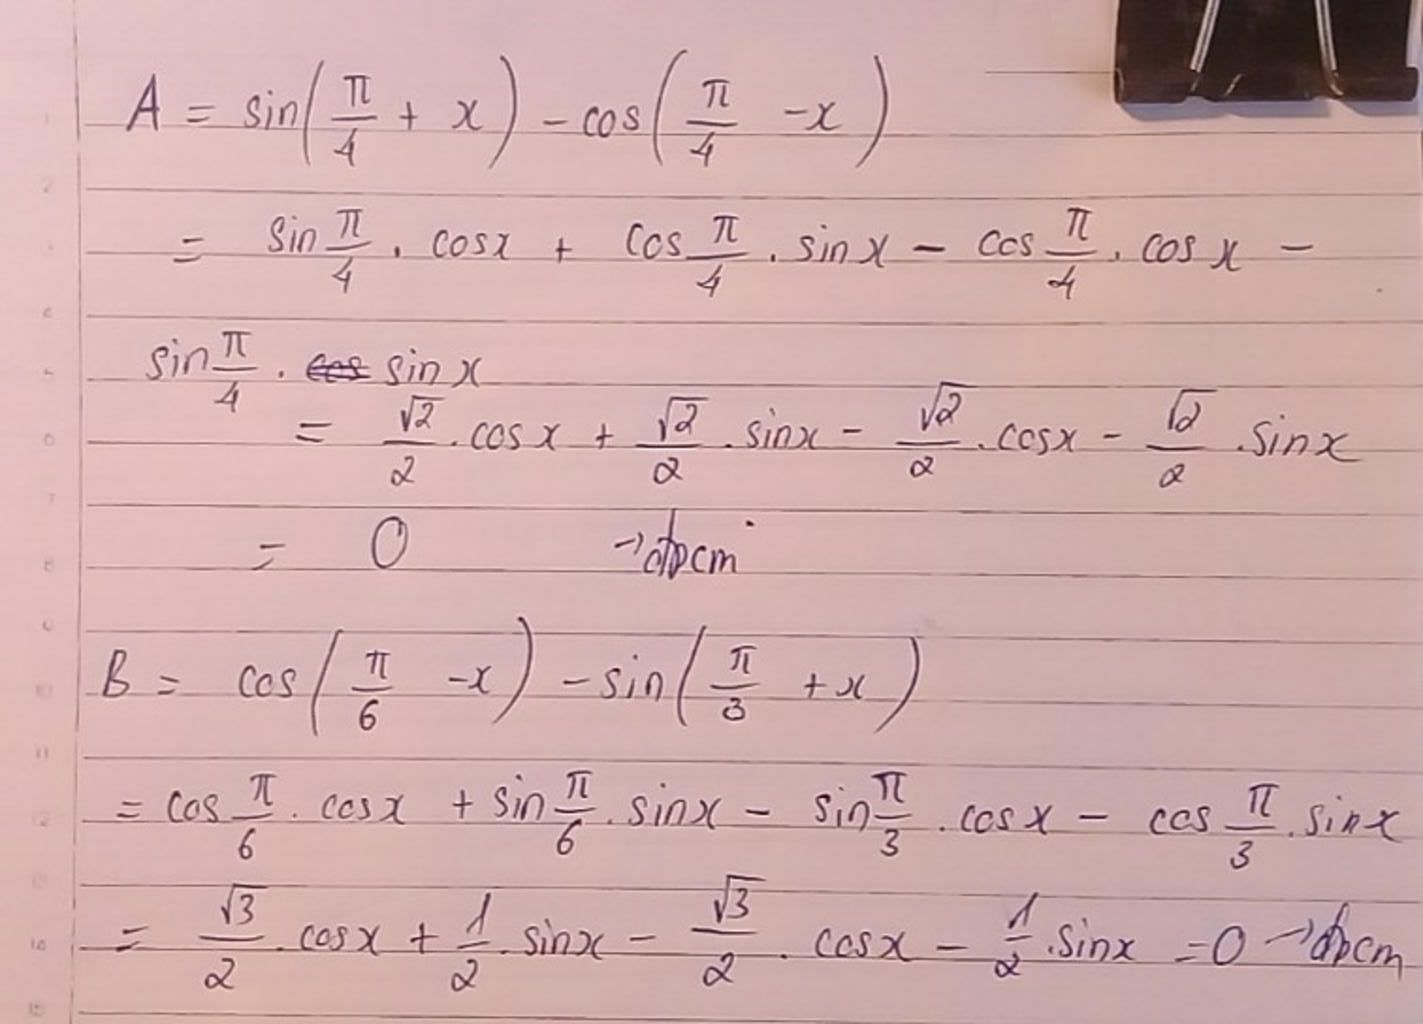 A = sin(π/4 + x) - cos(π/4 - x)
= sin π/4 . cosx + cos π/4 . sinx - cos π/4 . cosx -
sin π/4 . ~~cos~~ sinx
= √2/2 . cosx + √2/2 . sinx - √2/2 . cosx - √2/2 . sinx
= 0 → đpcm
B = cos(π/6 - x) - sin(π/3 + x)
= cos π/6 . cosx + sin π/6 . sinx - sin π/3 . cosx - cos π/3 . sinx
= √3/2 . cosx + 1/2 . sinx - √3/2 . cosx - 1/2 . sinx = 0 → đpcm